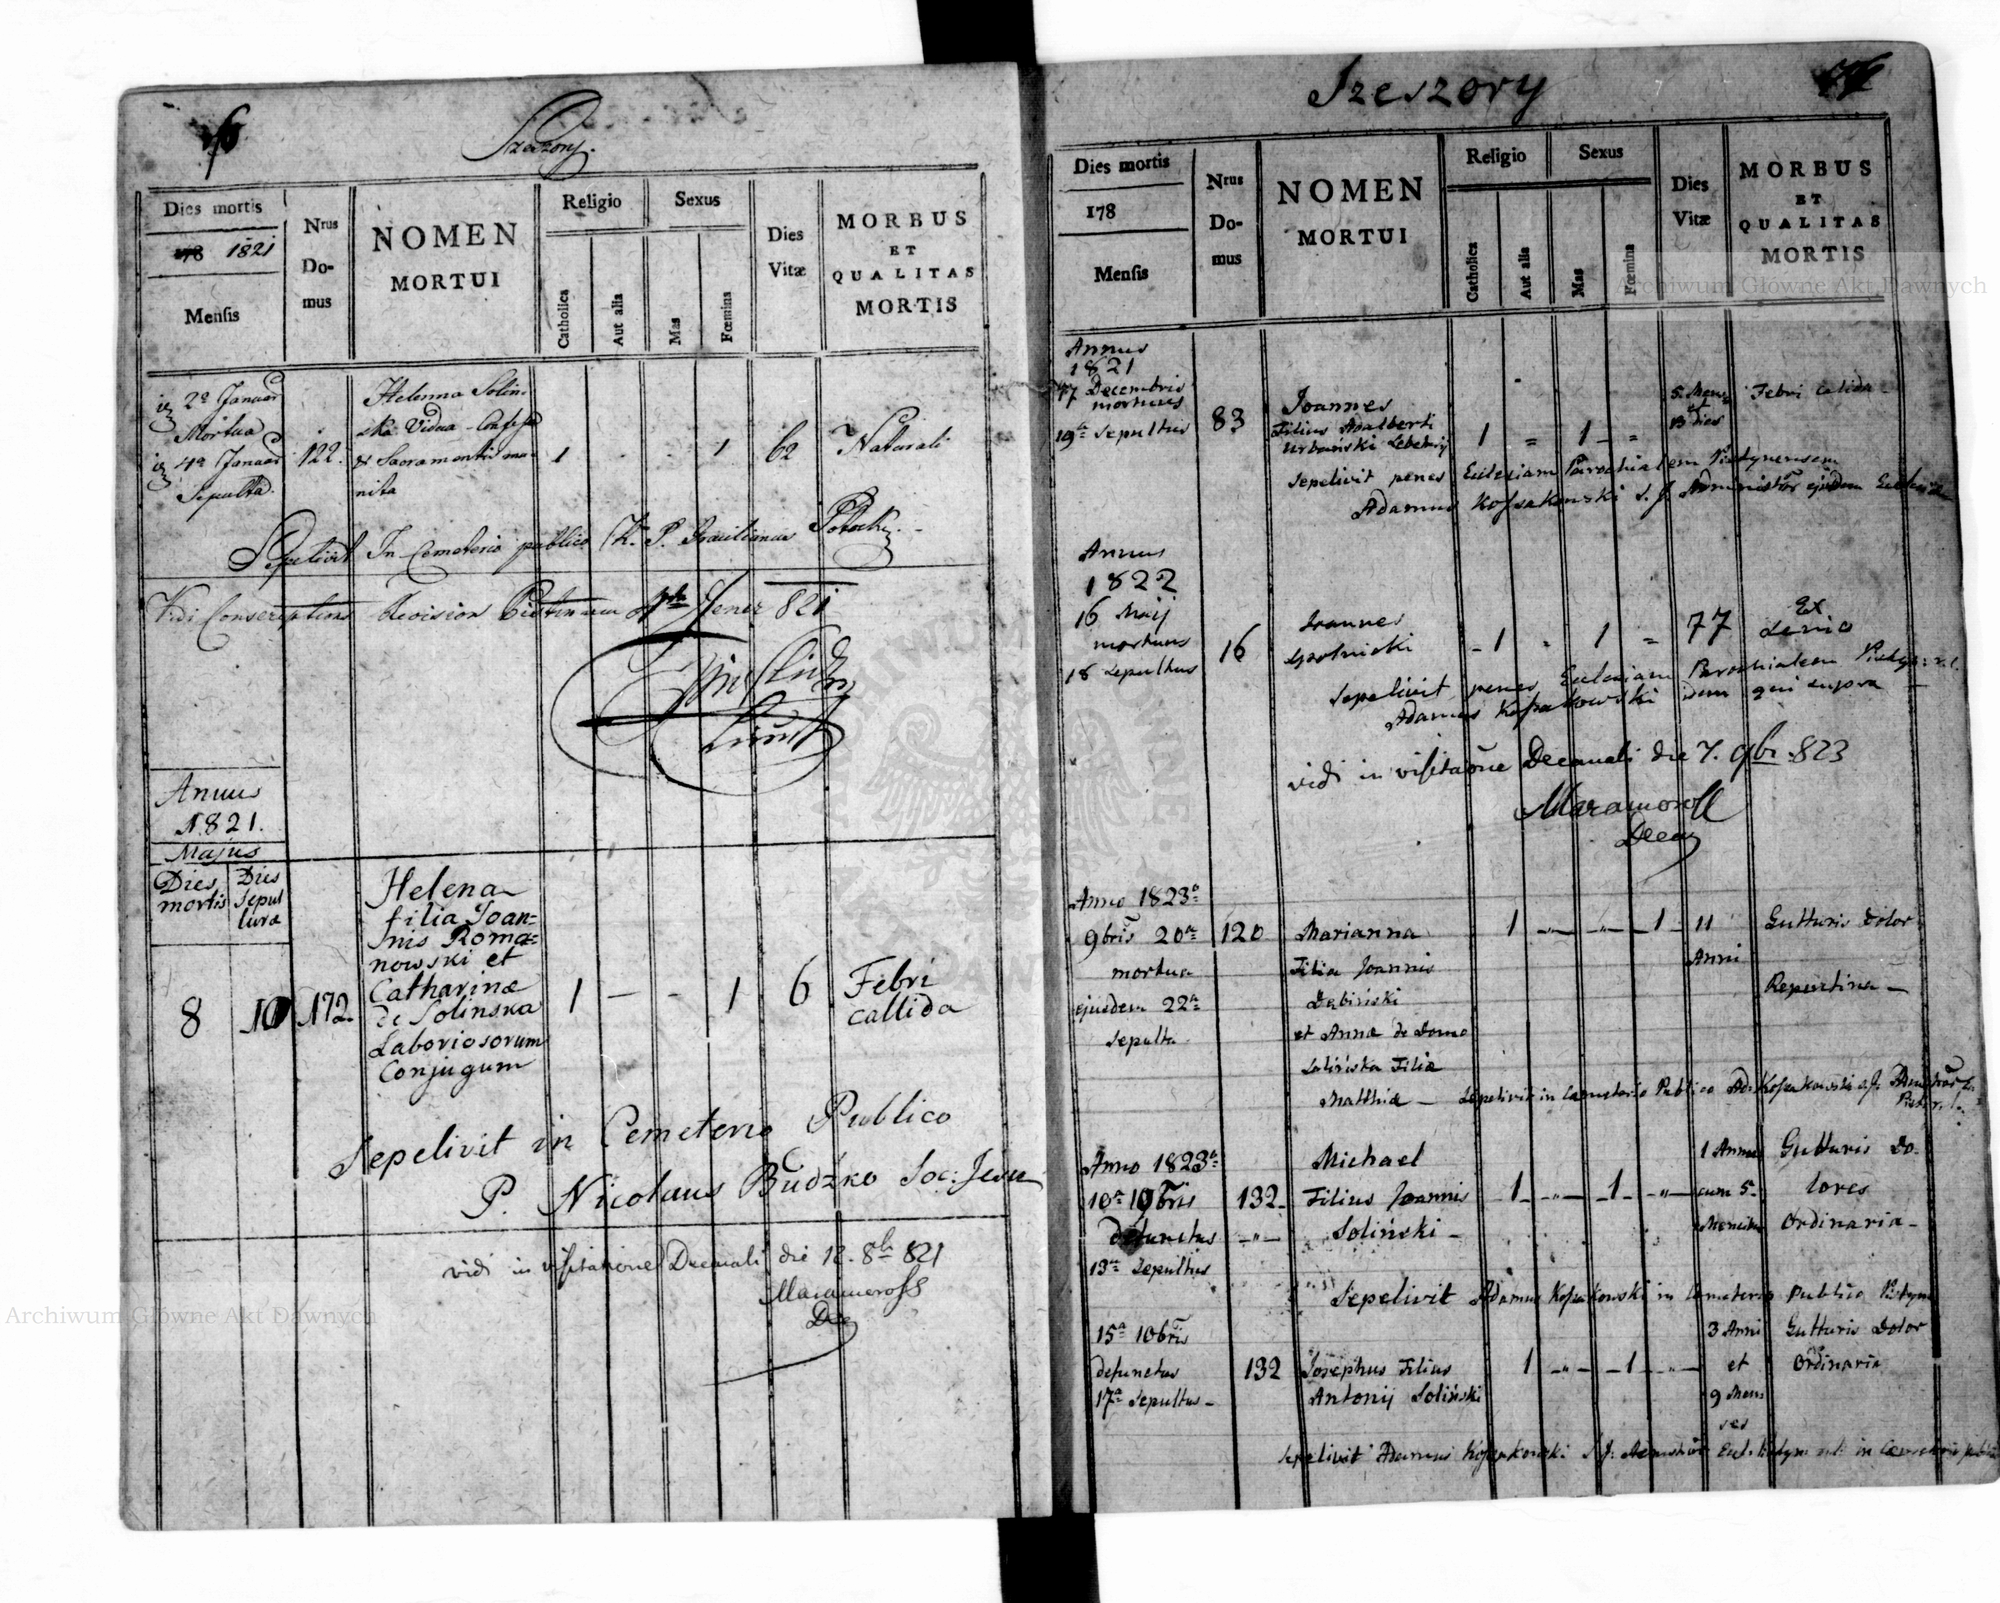 Szeszory.
Dies mortis
178 1821
Mensis
Nrus
Do-
mus
NOMEN
MORTUI
Religio
Catholica
Aut alia
Sexus
Mas
Fœmina
Dies
Vitæ
MORBUS
ET
QUALITAS
MORTIS
2a Januar
Mortua
4a Januar
Sepulta.
122.
Helenna Solin-
ska Vidua - Confessa
& Sacramentis mu-
nita
1 . . 1
62
Naturali
Sepelivit In Cemeterio publico P. Potocki
Vidi Conscriptions Revision Jener 821
Annus
1821.
Majus
Dies
mortis
Dies
sepul
turæ
8
10
172.
Helena
filia Joan=
nis Roma=
nowski et
Catharinæ
de Solinska
Laboriosorum
Conjugum
1 — - 1
6
Febri
callida
Sepelivit in Cemeterio Publico
P. Nicolaus Budźko Soc: Jesu
vidi in visitatione Decanali die 12. 8br 821
Maramoross
Dec
Szeszory
Dies mortis
178
Mensis
Nrus
Do-
mus
NOMEN
MORTUI
Religio
Catholica
Aut alia
Sexus
Mas
Fœmina
Dies
Vitæ
MORBUS
ET
QUALITAS
MORTIS
Annus
1821
17 Decembris
mortuus
19a sepultus
83
Joannes
Filius Adalberti
Urbański
1 = 1 - =
5 Mens
et
13 dies
Febri Calida -
Sepelivit penes Eclesiam Parochialem Pistynensem
Adamus Kossakowski S. J. Administrator ejusdem Eclesiæ
Annus
1822
16 Maij
mortuus
18 sepultus
16
Joannes
- 1 1 =
77
Ex
senio
Sepelivit penes Eclesiam Parochialem
Adamus Kossakowski idem qui supra
vidi in visitatione Decanali die 7. 9br 823
Maramoross
Decan
Anno 1823a
9bris 20a
mortua
ejusdem 22a
sepulta
120
Marianna
Filia Joannis
Dębiński
et Annæ de Domo
Solińska Filiæ
Matthiæ —
1 — „ — „ — 1
11
Anni
Gutturis dolor
Repentina —
Sepelivit in Cæmeterio Publico Ad: Kossakowski
Anno 1823a
10a 10bris
defunctus
13a sepultus
132-
— „ —
Michael
Filius Joannis
Soliński -
- 1 - „ — 1 - „ —
1 Annus
cum 5-
Mensibus
Gutturis do-
lores
Ordinaria -
Sepelivit Adamus Kossakowski in Cemeterio publico Pistyn
15a 10bris
defunctus
17a sepultus -
132
Josephus Filius
Antonij Soliński
1 — „ — 1 - „ —
3 Anni
et
9 Men
ses
Gutturis dolor
Ordinaria
Sepelivit Adamus Kossakowski S. J. in Cæmeterio publico
Archiwum Główne Akt Dawnych
Archiwum Główne Akt Dawnych